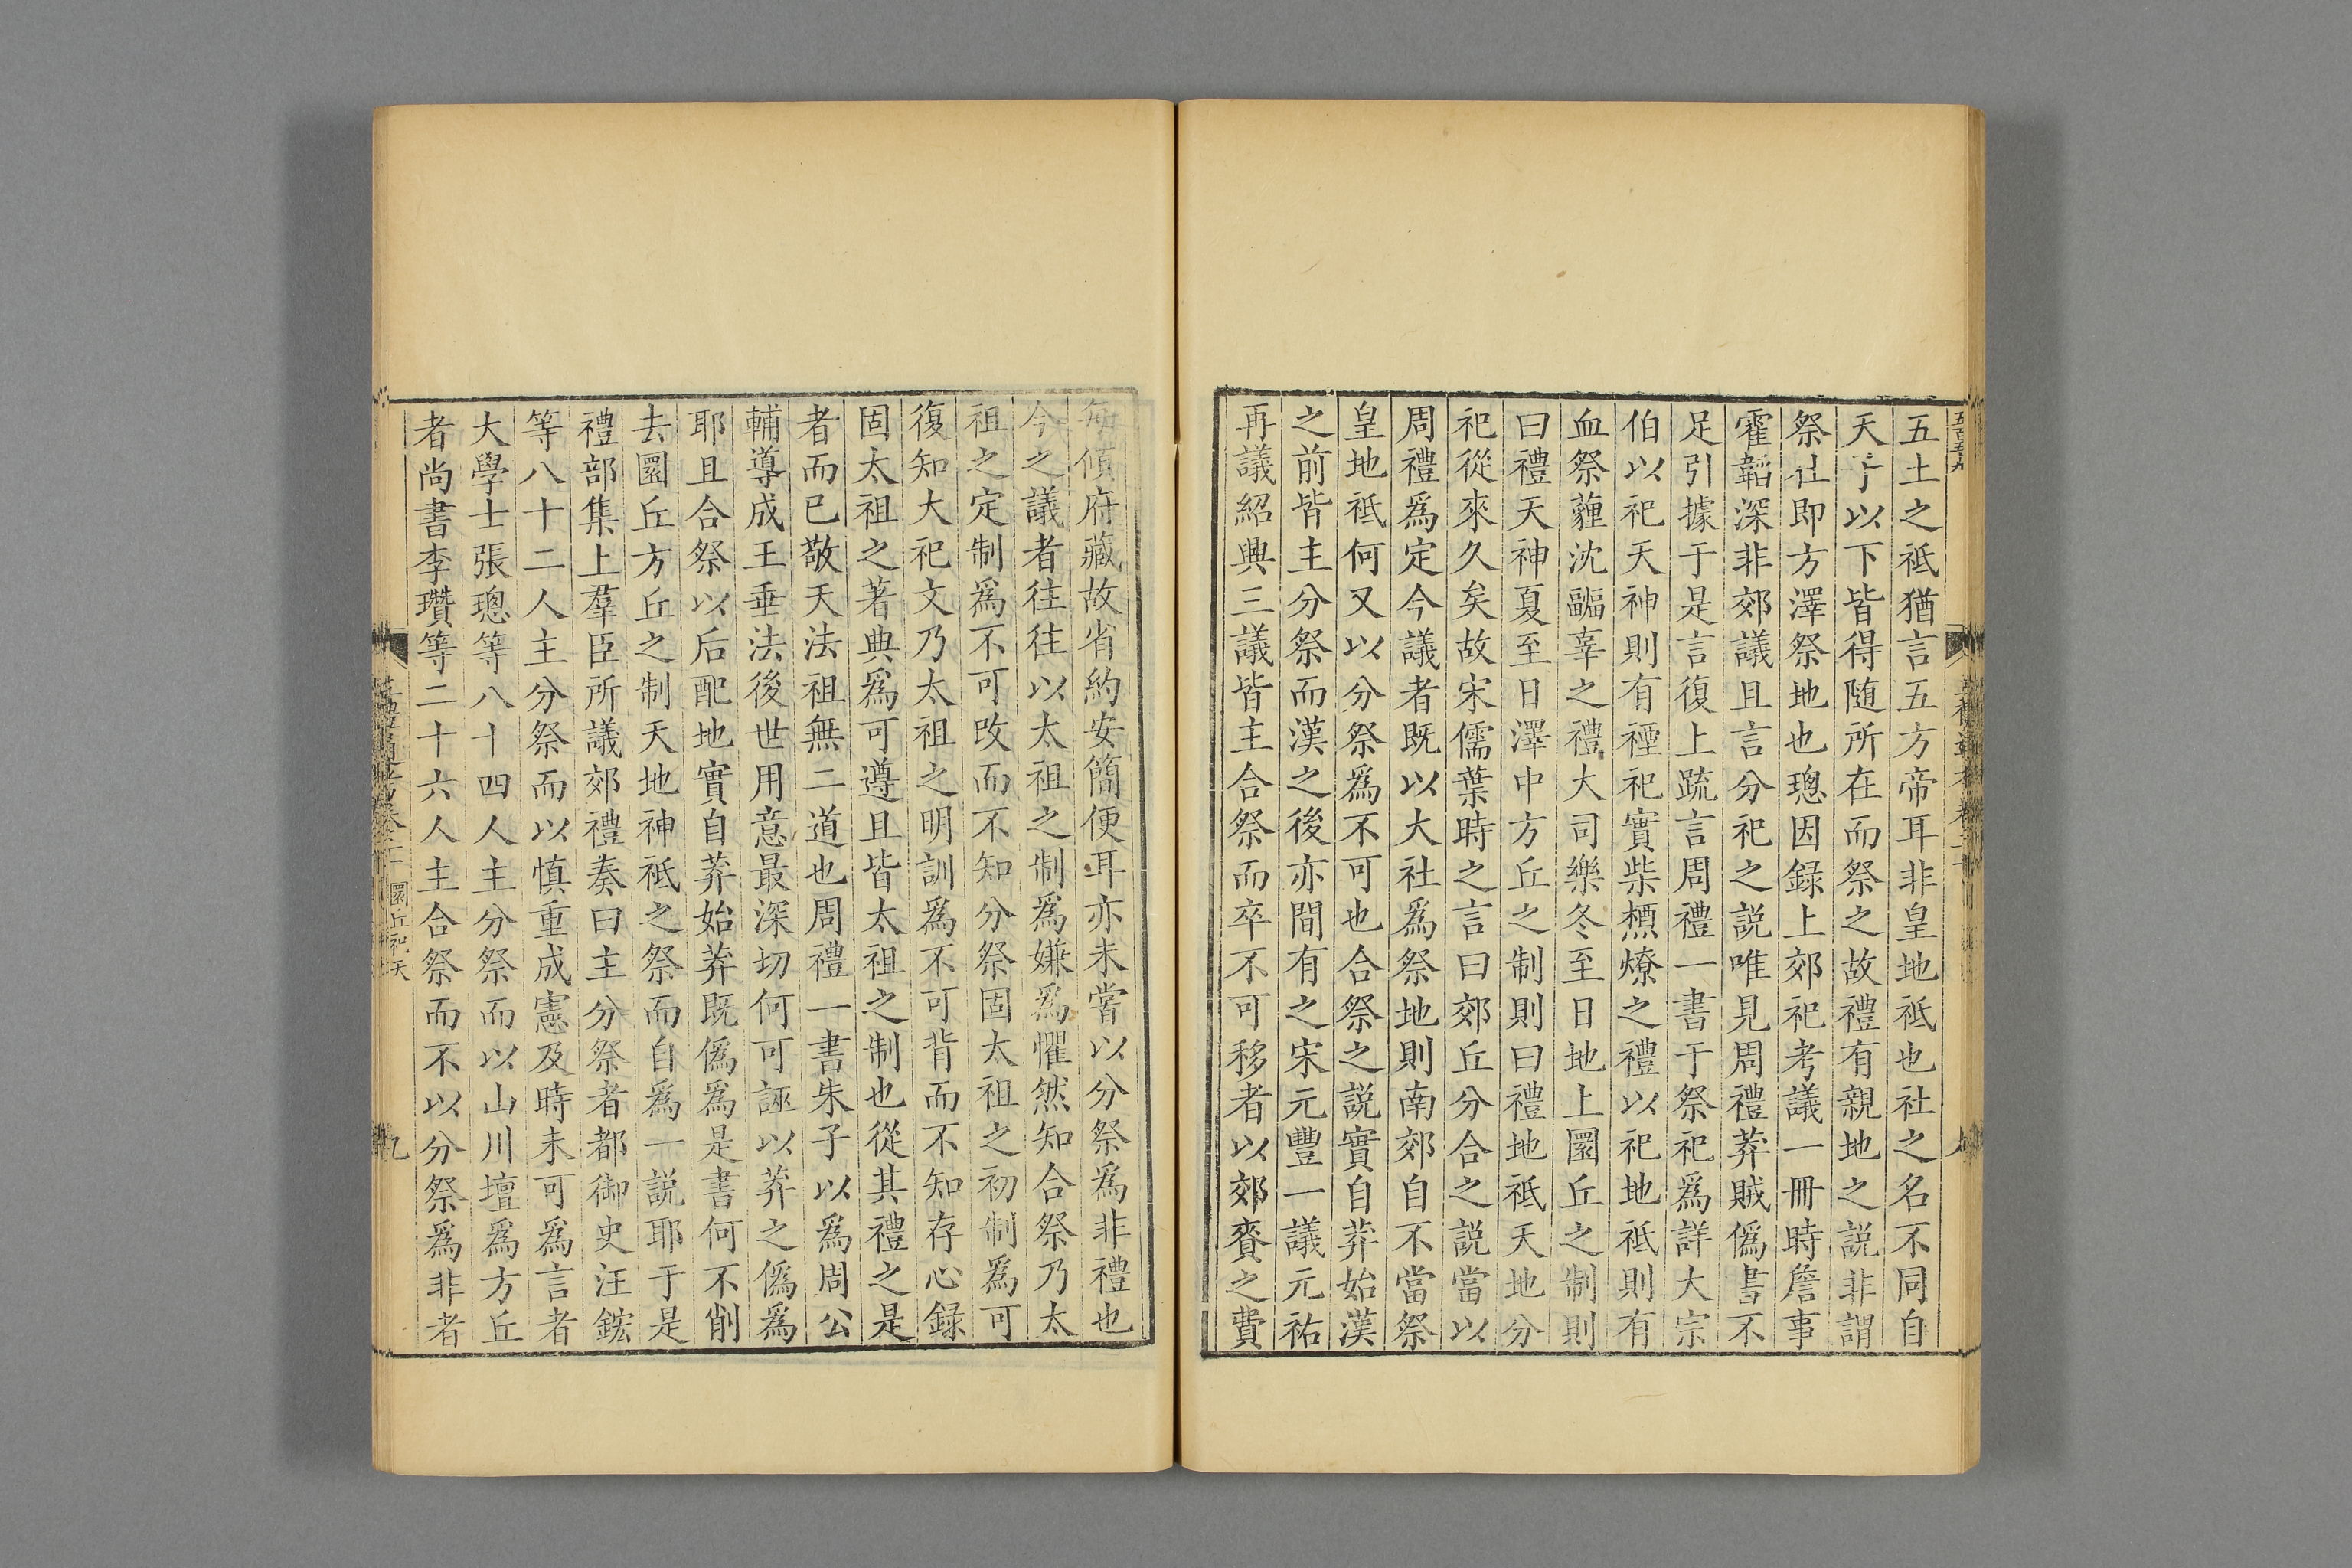 五土之祇猶言五方帝耳非皇地祇也社之名不同自
天子以下皆得随所在而祭之故禮有親地之説非謂
祭社即方澤祭地也璁因録上郊祀考議一冊時詹事
霍韜深非郊議且言分祀之説唯見周禮莽賊僞書不
足引據于是言復上疏言周禮一書于祭祀爲詳大宗
伯以祀天神則有禋祀實柴槱燎之禮以祀地祇則有
血祭薶沈疈辜之禮大司樂冬至日地上圜丘之制則
曰禮天神夏至日澤中方丘之制則曰禮地祇天地分
祀從來久矣故宋儒葉時之言曰郊丘分合之説當以
周禮爲定今議者既以大社爲祭地則南郊自不當祭
皇地祇何又以分祭爲不可也合祭之説實自莽始漢
之前皆主分祭而漢之後亦間有之宋元豐一議元祐
再議紹興三議皆主合祭而卒不可移者以郊賚之費
每傾府藏故省約安簡便耳亦未嘗以分祭爲非禮也
今之議者往往以太祖之制爲嫌爲懼然知合祭乃太
祖之定制爲不可改而不知分祭固太祖之初制爲可
復知大祀文乃太祖之明訓爲不可背而不知存心録
固太祖之著典爲可遵且皆太祖之制也從其禮之是
者而已敬天法祖無二道也周禮一書朱子以爲周公
輔導成王垂法後世用意最深切何可誣以莽之僞爲
耶且合祭以后配地實自莽始莽既僞爲是書何不削
去圜丘方丘之制天地神祇之祭而自爲一説耶于是
禮部集上羣臣所議郊禮奏曰主分祭者都御史汪鋐
等八十二人主分祭而以慎重成憲及時未可爲言者
大學士張璁等八十四人主分祭而以山川壇爲方丘
者尚書李瓚等二十六人主合祭而不以分祭爲非者
圜丘祀天
九